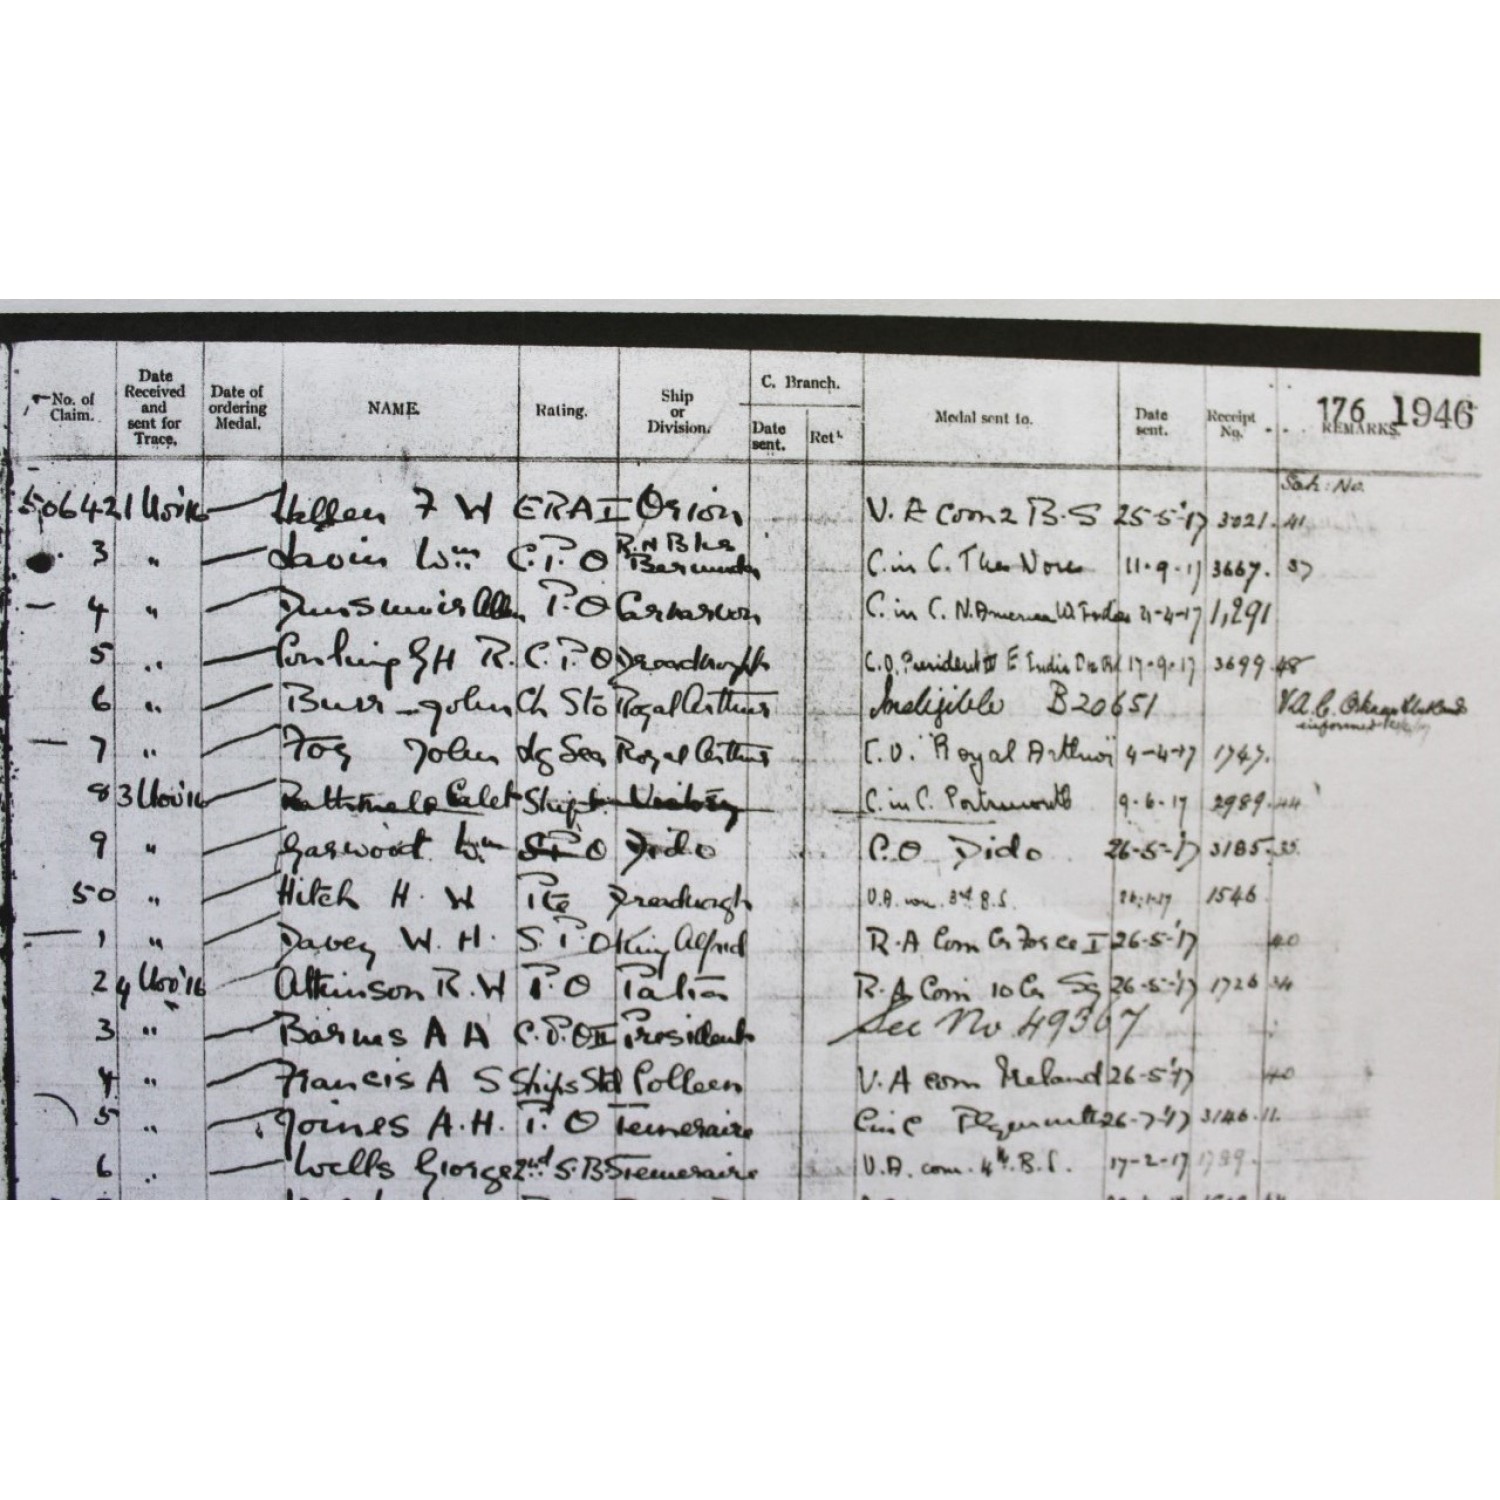 No. of Claim. Date Received and sent for Trace. Date of ordering Medal. NAME. Rating. Ship or Division. C. Branch. Date sent. Ret^d. Medal sent to. Date sent. Receipt No. REMARKS. 176 1946
50642 1 Nov '16 F W ERA I Orion V. A Com 2 B.S 25-5-'17 3021. 41
3 " Wm C.P.O R.N Bks Bermuda C. in C. The Nore 11-9-17 3667. 37
4 " P.O Carnarvon C. in C. N. America W. Indies 21-4-17 1,291
5 " G H R. C.P.O Dreadnought C.O. President III 17-9-17 3699 48
6 " Burr John Ch Sto Royal Arthur Ineligible B20651 informed
7 " Foy John Lg Sea Royal Arthur C.O. "Royal Arthur" 4-4-17 1747.
8 3 Nov '16 Caleb Shipt Victory C. in C. Portsmouth 9-6-17 2989. 44
9 " Garwood Wm S.P.O Dido C.O Dido 26-5-'17 3185. 35
50 " Hitch H. W Pte Dreadnought V.A. com. 3rd B.S. 1546
1 " Davey W. H. S.P.O King Alfred R.A Com Cr Force I 26-5-'17 40
2 4 Nov '16 Atkinson R.W P.O Patia R.A Com 10 Cr Sq 26-5-'17 1726 34
3 " Barnes A A C.P.O II President See No 49367
4 " Francis A S Ships Std Colleen V.A com Ireland 26-5-'17 40
5 " Joines A.H. P.O Temeraire C in C Plymouth 26-7-'17 3146. 11.
6 " Wells George 2nd S.B.S Temeraire V.A. com. 4th B.S. 17-2-17 1789.